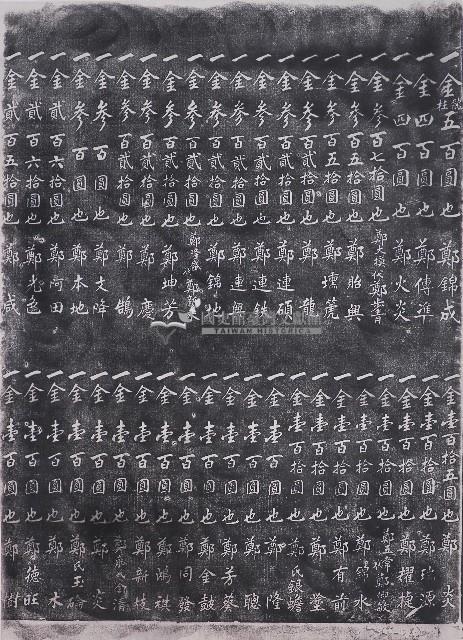 一金五百圓也 鄭錦成
一金四百圓也 鄭傳準
一金四百圓也 鄭火炎
一金參百七拾圓也
一金參百五拾圓也 鄭貽興
一金參百五拾圓也 鄭壇箎
一金參百貳拾圓也 鄭龍
一金參百貳拾圓也 鄭連碩
一金參百貳拾圓也 鄭連鉄
一金參百貳拾圓也 鄭連興
一金參百貳拾圓也 鄭錦地
一金參百貳拾圓也
一金參百貳拾圓也 鄭坤芳
一金參百貳拾圓也 鄭慶
一金參百貳拾圓也 鄭鵠
一金參百圓也 鄭文降
一金參百圓也 鄭本地
一金貳百六拾圓也 鄭阿田
一金貳百六拾圓也 鄭光色
一金貳百五拾圓也 鄭咸
一金壹百拾五圓也 鄭炎
一金壹百拾圓也 鄭源
一金壹百拾圓也 鄭耀捷
一金壹百拾圓也
一金壹百拾圓也 鄭錦水
一金壹百拾圓也 鄭有前
一金壹百拾圓也 鄭堂
一金壹百拾圓也 鄭氏銀蟾
一金壹百圓也 鄭隆
一金壹百圓也 鄭聰
一金壹百圓也 鄭芳葵
一金壹百圓也 鄭金鼓
一金壹百圓也 鄭同發
一金壹百圓也 鄭鴻祺
一金壹百圓也 鄭新枝
一金壹百圓也
一金壹百圓也 鄭炎
一金壹百圓也 鄭氏玉
一金壹百圓也 鄭木
一金壹百圓也 鄭德旺
一金壹百圓也 鄭樹
TAIWAN HISTORICA